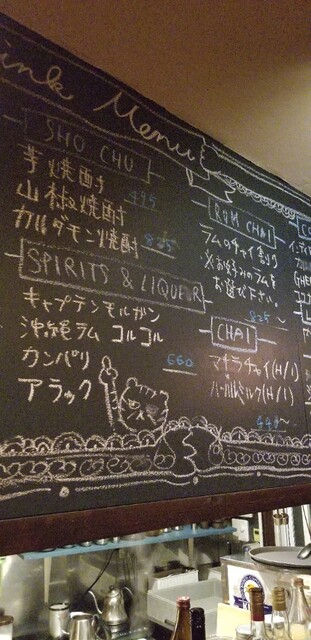 ink Menu
SHO CHU
芋焼酎
495
山椒焼酎
カルダモン焼酎
825
SPIRITS & LIQUEUR
キャプテンモルガン
沖縄ラム コルコル
カンパリ
660
アラック
RUM CHAI
ラムのチャイ割り
※お好みのラムを
お選び下さい。
825~
CHAI
マサラチャイ(H/I)
440~
CO
インディ
GHE